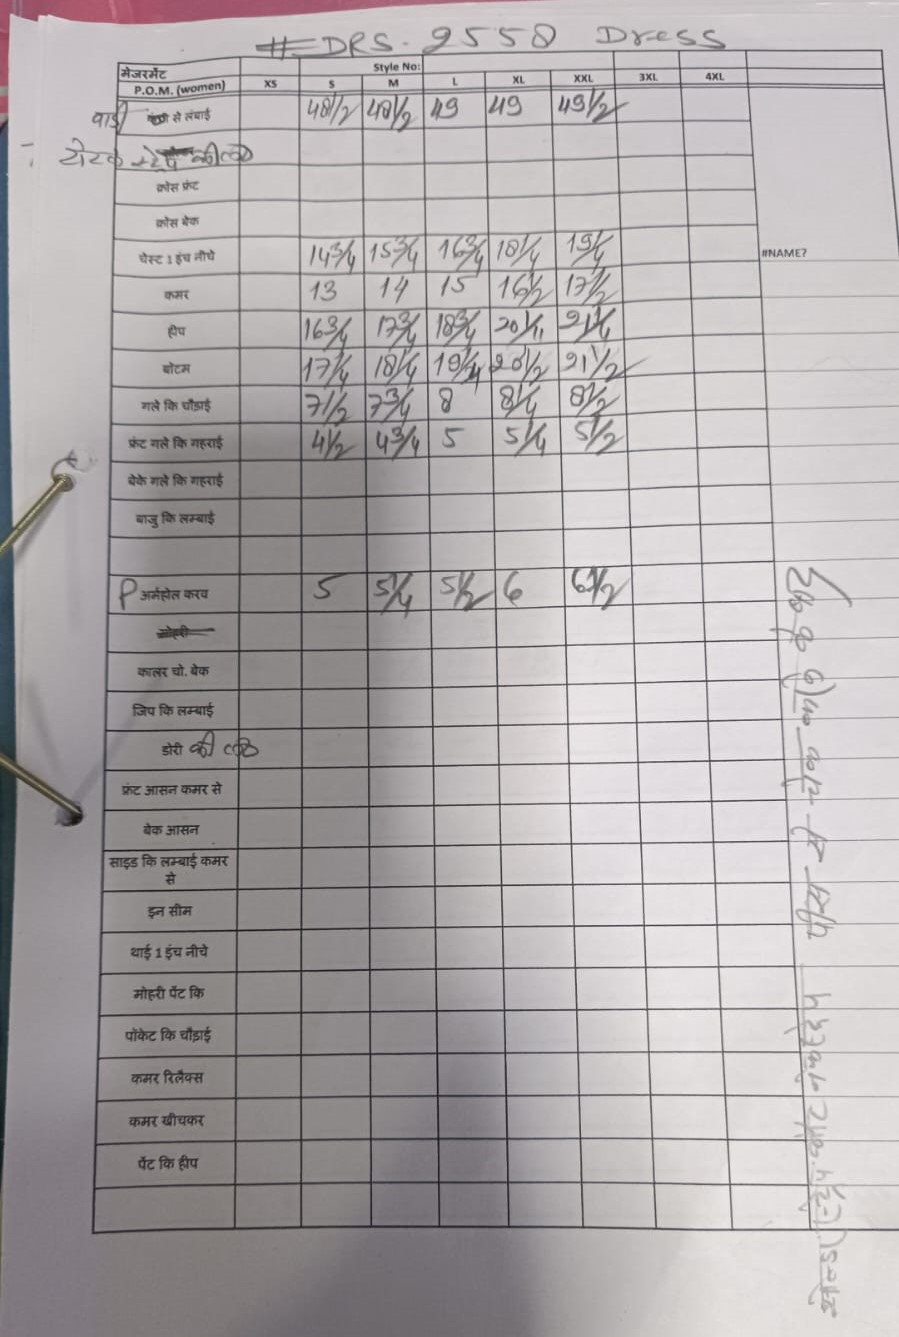 # DRS-2558 Dress
मेजरमेंट Style No:
P.O.M. (women) XS S M L XL XXL 3XL 4XL
से लंबाई 48 1/2 48 1/2 49 49 49 1/2
की
क्रोस फ्रंट
क्रोस बेक
चेस्ट 1 इंच नीचे 14 3/4 15 3/4 16 3/4 18 1/4 19 1/4 #NAME?
कमर 13 14 15 16 1/2 17 1/2
हीप 16 3/4 17 3/4 18 3/4 20 1/4 21 1/4
बोटम 17 1/4 18 1/4 19 1/4 20 1/2 21 1/2
गले कि चौड़ाई 7 1/2 7 3/4 8 8 1/4 8 1/2
फ्रंट गले कि गहराई 4 1/2 4 3/4 5 5 1/4 5 1/2
बेके गले कि गहराई
बाजु कि लम्बाई
P आर्महोल करव 5 5 1/4 5 1/2 6 6 1/2
मोहरी
कालर चो. बेक
जिप कि लम्बाई
डोरी की
फ्रंट आसन कमर से
बेक आसन
साइड कि लम्बाई कमर
से
इन सीम
थाई 1 इंच नीचे
मोहरी पेंट कि
पॉकेट कि चौड़ाई
कमर रिलैक्स
कमर खीचकर
पेंट कि हीप